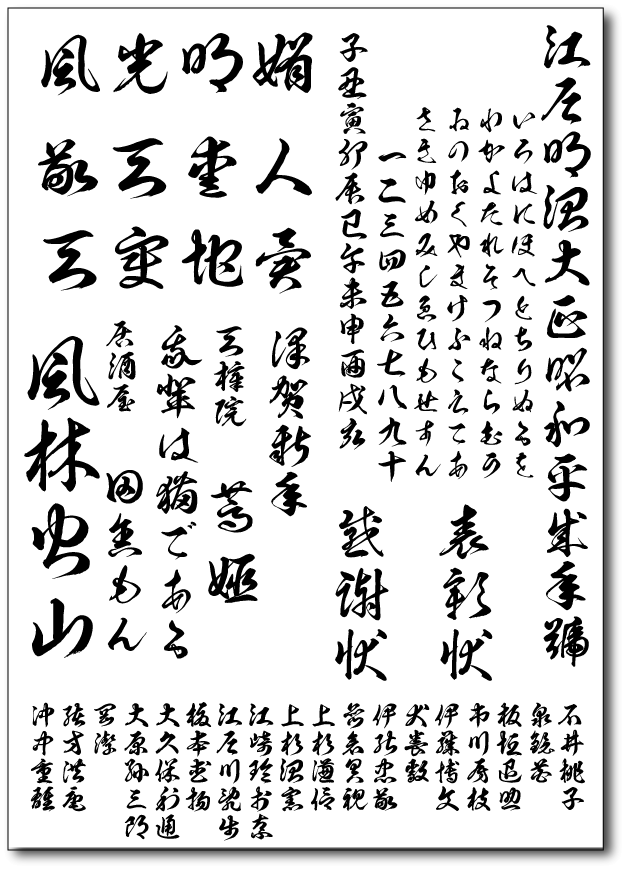 江戸明治大正昭和平成年號
いろはにほへとちりぬるを
わかよたれそつねならむう
ゐのおくやまけふこえてあ
さきゆめみしゑひもせすん
一二三四五六七八九十
子丑寅卯辰巳午未申酉戌亥
表彰状
感謝状
風光明媚
敬天愛人
天変地異
謹賀新年
我輩は猫である
居酒屋
風林火山
石井桃子
泉鏡花
板垣退助
市川房枝
伊藤博文
犬養毅
伊能忠敬
岩倉具視
上杉謙信
上杉治憲
江崎玲於奈
江戸川乱歩
榎本武揚
大久保利通
大原孫三郎
岡潔
緒方洪庵
沖中重雄